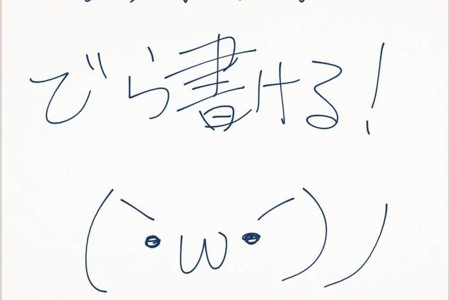 でら書ける!
(｀・ω・´)ノ